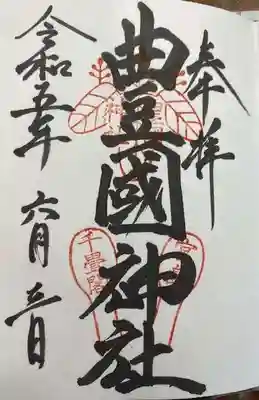 奉拝
豊國神社
令和五年六月三日
千畳閣